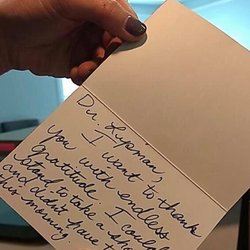 Dr. Lipman,
I want to thank
you with endless
gratitude. I could
stand to take a sho
and didn't have t
this morning